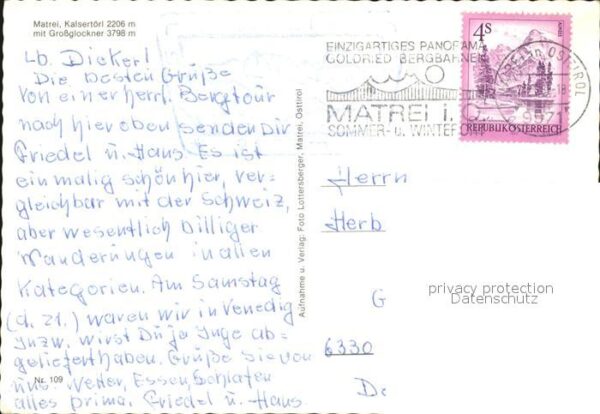 Matrei, Kalsertörl 2206 m
mit Großglockner 3798 m
Lb. Dicker!
Die besten Grüße
von einer herrl. Bergtour
nach hier oben senden Dir
Friedel u. Haus Es ist
einmalig schön hier, ver-
gleichbar mit der Schweiz,
aber wesentlich billiger
Wanderungen in allen
Kategorien. Am Samstag
(d. 21.) waren wir in Venedig
Inzw. wirst Du ja Inge ab-
geliefert haben. Grüße Sie von
uns. Wetter, Essen, Schlafen
alles prima. Friedel u. Haus.
Nr. 109
Aufnahme u. Verlag: Foto Lottersberger, Matrei, Osttirol
EINZIGARTIGES PANORAMA
GOLDRIED BERGBAHNEN
MATREI i. O.
SOMMER- u. WINTER
9971
OSTTIROL
4S
REPUBLIK ÖSTERREICH
Herrn
Herb
G
6330
privacy protection
Datenschutz